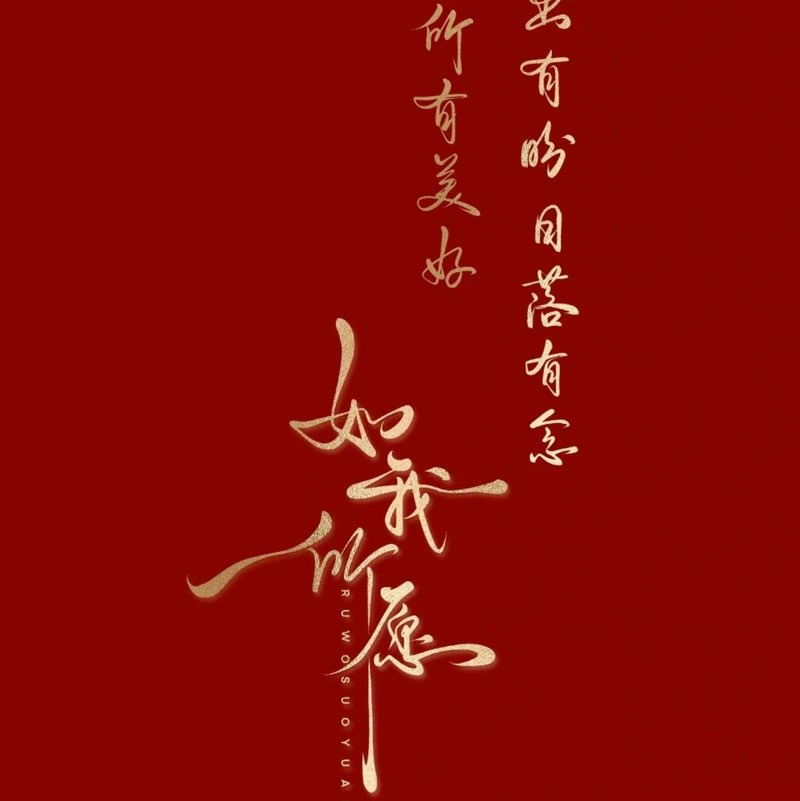 出有盼日落有念
所有美好
如我所愿
RUWOSUOYUA